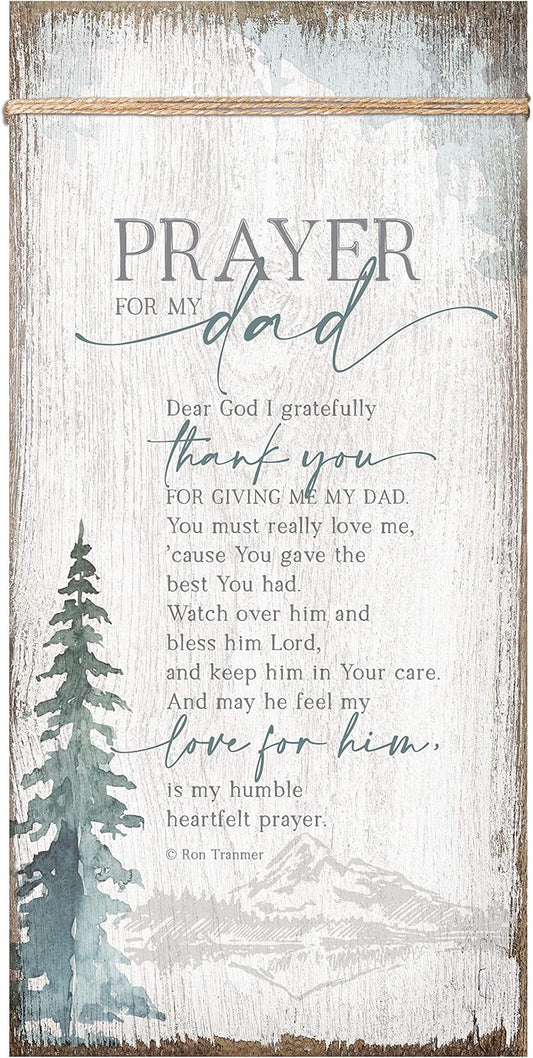 PRAYER
FOR MY dad
Dear God I gratefully
thank you
FOR GIVING ME MY DAD.
You must really love me,
'cause You gave the
best You had.
Watch over him and
bless him Lord,
and keep him in Your care.
And may he feel my
love for him,
is my humble
heartfelt prayer.
© Ron Tranmer